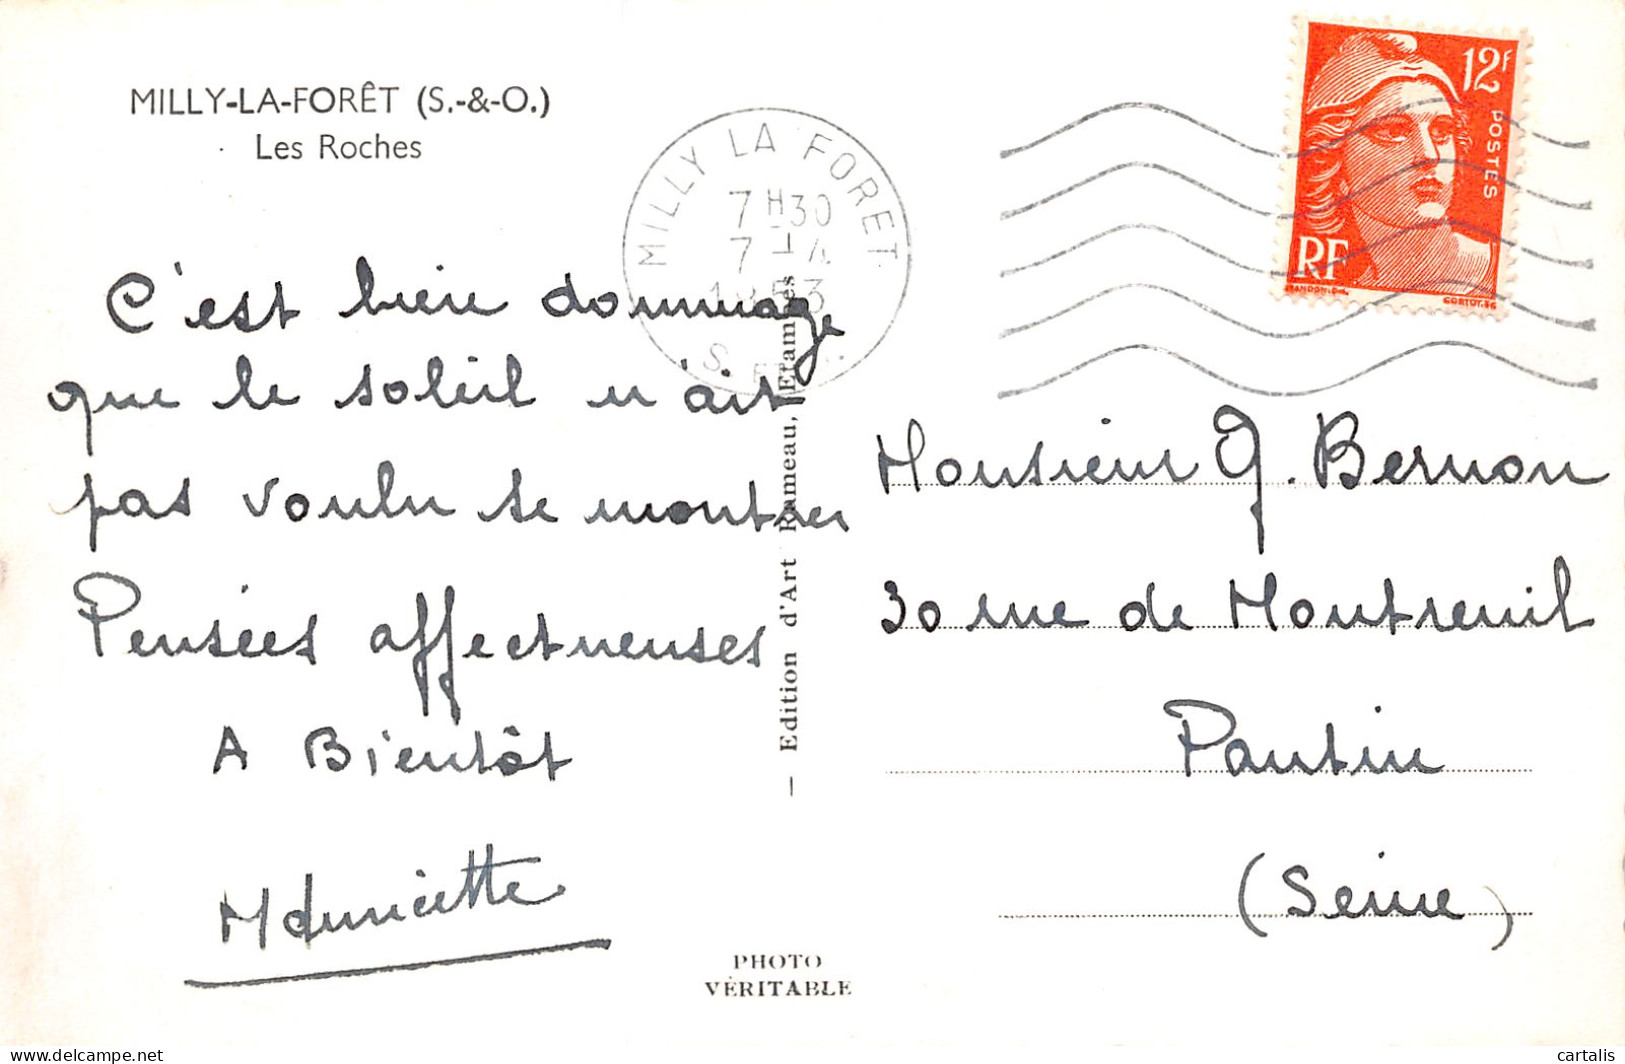 MILLY-LA-FORÊT (S.-&-O.)
Les Roches
MILLY LA FORET
7H30
7-4
1953
12f
POSTES
RF
GANDON.DEL.
CORTOT.SC
C'est bien dommage
que le soleil n'ait
pas voulu se montrer
Pensées affectueuses
A Bientôt
Mauricette
— Edition d'Art Rameau, Etampes —
Monsieur G. Bernon
30 rue de Montreuil
Pantin
(Seine)
PHOTO
VÉRITABLE
delcampe.net
cartalis